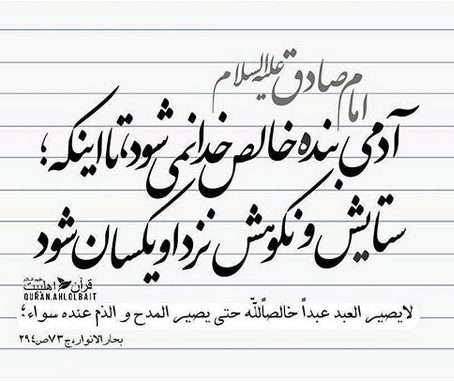 امام صادق علیه السلام
آدمی بنده خالص خدا نمی شود، تا اینکه؛
ستایش و نکوهش نزد او یکسان شود
قرآن اهلبیت علیهم السلام
QURAN.AHLOLBAIT
لایصیر العبد عبداً خالصاًلله حتی یصیر المدح و الذم عنده سواء؛
بحارالانوار،ج۷۳ص۲۹۴